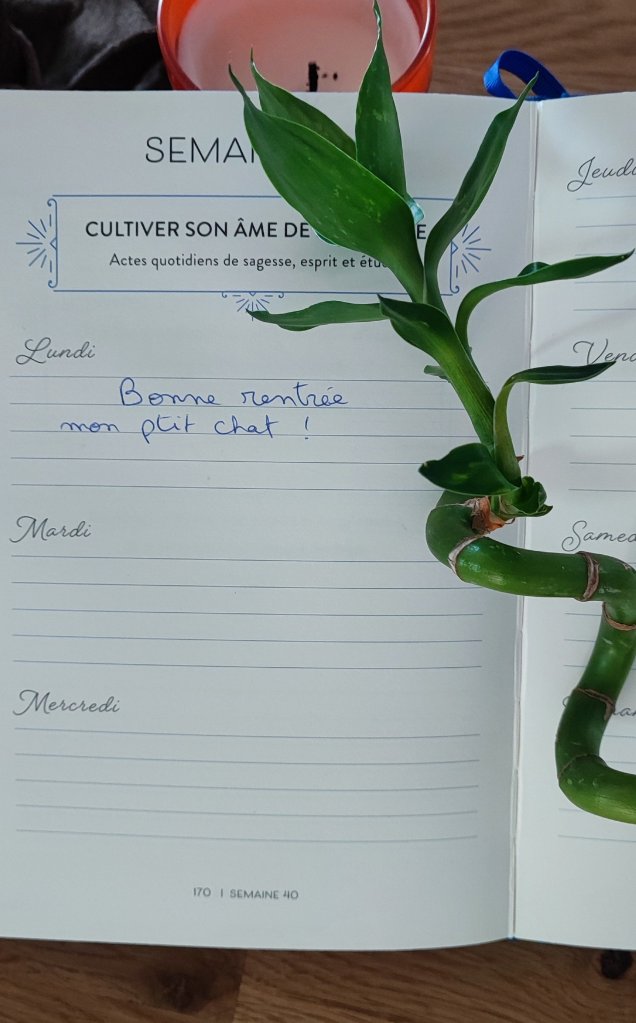 SEMAI
CULTIVER SON ÂME DE
Actes quotidiens de sagesse, esprit et étu
Lundi
Bonne rentrée
mon ptit chat !
Mardi
Mercredi
170 | SEMAINE 40
Jeudi
Vend
Samed